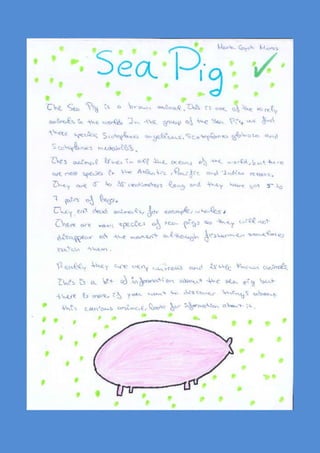 Sea Pig
The Sea Pig is a brown animal, this is one of the rarely
animals in the world. In the group of the Sea Pig, we find
three species: Scotoplanes angelicus, Scotoplanes globosa and
Scotoplanes
This animal lives in all the oceans of the world, but there
are more species in the Atlantic, Pacific and Indian oceans.
They are 5 to 15 centimeters long and they have got 5 to
7 pairs of legs.
They eat dead animals, for example, whales.
There are many species of sea pigs so they will not
disappear at the moment although fishermen sometimes
catch them.
they are very curious and known animals.
This is a bit of information about the sea pig but
there is more if you want to discover things about
this curious animal, look for information about it.